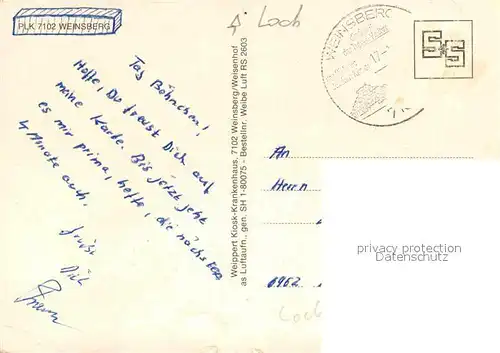 PLK 7102 WEINSBERG
Loch
WEINSBERG
17.-
Tag Böhnchen!
Hoffe, Du freust Dich auf
meine Karte. Bis jetzt geht
es mir prima, hoffe, die nächsten
4 Monate auch.
Grüße
Dich
Weippert Kiosk-Krankenhaus, 7102 Weinsberg/Weisenhof
as Luftaufn., gen. SH 1-80075 - Bestellnr. Weibe Luft RS 2603
An
Herrn
6962
Loch
privacy protection
DELCAMPE